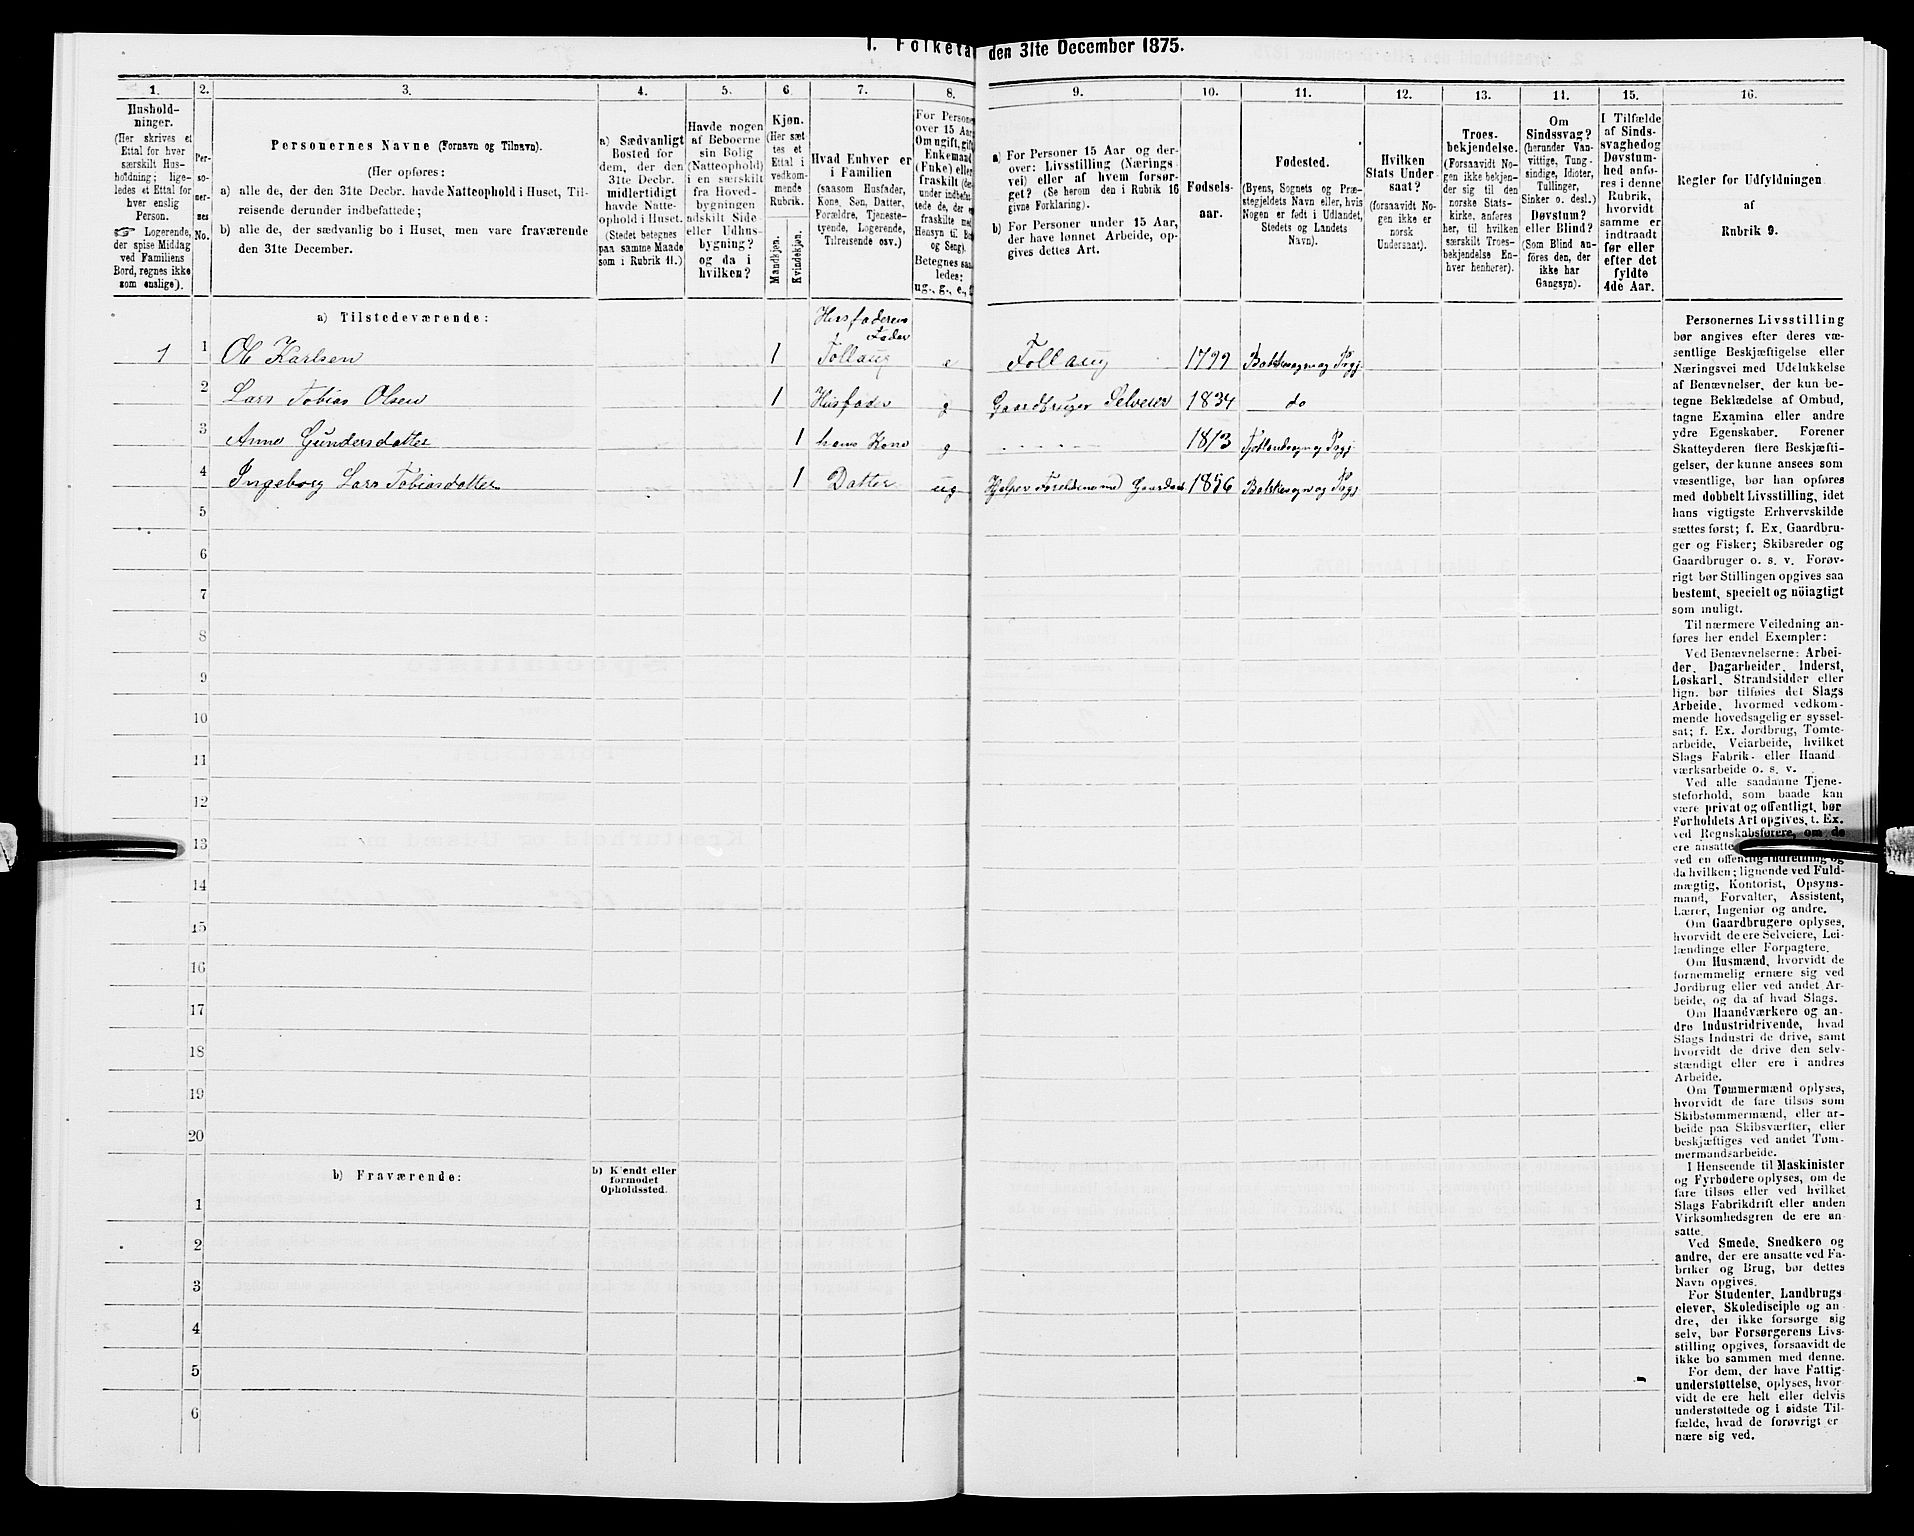 1. Folketæ den 31te December 1875.
1. 2. 3. 4. 5. 6. 7. 8. 9. 10. 11. 12. 13. 14. 15. 16.
Hushold-
ninger.
(Her skrives et
Ettal for hver
særskilt Hus-
holdning; lige-
ledes et Ettal for
hver enslig
Person.
☞ Logerende,
der spise Middag
ved Familiens
Bord, regnes ikke
som enslige).
Per-
sono-
mer-
nes
No.
Personernes Navne (Fornavn og Tilnavn).
(Her opføres:
a) alle de, der den 31te Decbr. havde Natteophold i Huset, Til-
reisende derunder indbefattede;
b) alle de, der sædvanlig bo i Huset, men vare fraværende
den 31te December.
a) Sædvanligt
Bosted for
dem, der den
31te Decbr.
midlertidigt
havde Natte-
ophold i Huset.
(Stedet betegnes
paa samme Maade
som i Rubrik 11.)
Havde nogen
af Beboerne
sin Bolig
(Natteophold)
i en særskilt
fra Hoved-
bygningen
adskilt Side-
eller Udhus-
bygning?
og da i
hvilken?
Kjøn.
(Her sæt
tes et
Ettal i
vedkom-
mende
Rubrik.
Mandkjøn.
Kvindekjøn.
Hvad Enhver er
i Familien
(saasom Husfader,
Kone, Søn, Datter,
Forældre, Tjeneste-
tyende, Logerende,
Tilreisende osv.)
For Persone
over 15 Aar
Om ugift, gift
Enkemand
(Enke) eller
fraskilt (de
under indbefat
tede de, der e
fraskilte med
Hensyn til Bo
og Seng).
Betegnes saa
ledes:
ug., g., e., f
a) For Personer 15 Aar og der-
over: Livsstilling (Nærings
vei) eller af hvem forsør-
get? (Se herom den i Rubrik 16
givne Forklaring).
b) For Personer under 15 Aar,
der have lønnet Arbeide, op-
gives dettes Art.
Fødsels-
aar.
Fødested.
(Byens, Sognets og Præ-
stegjeldets Navn eller, hvis
Nogen er født i Udlandet,
Stedets og Landets
Navn).
Hvilken
Stats Under
saat?
(forsaavidt No-
gen ikke er
norsk
Undersaat).
Troes-
bekjendelse.
(Forsaavidt No-
gen ikke bekjen-
der sig til den
norske Stats-
kirke, anføres
her, til hvilken
særskilt Troes-
bekjendelse En-
hver henhører).
Om
Sindssvag?
(herunder Van-
vittige, Tung-
sindige, Idioter,
Tullinger,
Sinker o. desl.)
Døvstum?
eller Blind?
(Som Blind an-
føres den, der
ikke har
Gangsyn).
I Tilfælde
af Sinds-
svaghed og
Døvstum-
hed anfø-
res i denne
Rubrik,
hvorvidt
samme er
indtraadt
før eller
efter det
fyldte
4de Aar.
Regler for Udfyldningen
af
Rubrik 9.
a) Tilstedeværende:
Husfaderens
Fader
1 1 Ole Karlsen 1 Follaug e Follaug 1799 Bakkesogn og Pgj
2 Lars Tobias Olsen 1 Husfader g Gaardbruger Selveier 1834 do
3 Anne Gundersdatter 1 hans Kone g 1813 Fjotlandsogn og Pgj
4 Ingeborg Lars Tobiasdatter 1 Datter ug Hjelper Forældrene med 1856 Bakkesogn og Pgj
5
6
7
8
9
10
11
12
13
14
15
16
17
18
19
20
b) Fraværende:
b) Kjendt eller
formodet
Opholdssted.
1
2
3
4
5
6
Personernes Livsstilling
bør angives efter deres væ-
sentlige Beskjæftigelse eller
Næringsvei med Udelukkelse
af Benævnelser, der kun be-
tegne Beklædelse af Ombud,
tagne Examina eller andre
ydre Egenskaber. Forener
Skatteyderen flere Beskjæfti-
gelser, der kunne ansees som
væsentlige, bør han opføres
med dobbelt Livsstilling, idet
hans vigtigste Erhvervskilde
sættes først; f. Ex. Gaardbru-
ger og Fisker; Skibsreder og
Gaardbruger o. s. v. Forøv-
rigt bør Stillingen opgives saa
bestemt, specielt og nöiagtigt
som muligt.
Til nærmere Veiledning an-
føres her endel Exempler:
Ved Benævnelserne: Arbei-
der, Dagarbeider, Inderst,
Løskarl, Strandsidder eller
lign. bør tilføies det Slags
Arbeide, hvormed vedkom-
mende hovedsagelig er syssel-
sat; f. Ex. Jordbrug, Tomte-
arbeide, Veiarbeide, hvilket
Slags Fabrik- eller Haand
værksarbeide o. s. v.
Ved alle saadanne Tjene-
steforhold, som baade kan
være privat og offentligt, bør
Forholdets Art opgives, t. Ex.
ved Regnskabsførere, om de
ere ansatte
ved en offentlig Indretning og
da hvilken; lignende ved Fuld-
mægtig, Kontorist, Opsyns-
mand, Forvalter, Assistent,
Lærer, Ingeniør og andre.
Om Gaardbrugere oplyses,
hvorvidt de ere Selveiere, Lei-
lændinge eller Forpagtere.
Om Husmænd, hvorvidt de
fornemmelig ernære sig ved
Jordbrug eller ved andet Ar-
beide, og da af hvad Slags.
Om Haandværkere og an-
dre Industridrivende, hvad
Slags Industri de drive, samt
hvorvidt de drive den selv-
stændigt eller ere i andres
Arbeide.
Om Tømmermænd oplyses,
hvorvidt de fare tilsøs som
Skibstømmermænd, eller ar-
beide paa Skibsværfter, eller
beskjæftiges ved andet Tøm-
mermandsarbeide.
I Henseende til Maskinister
og Fyrbødere oplyses, om de
fare tilsøs eller ved hvilket
Slags Fabrikdrift eller anden
Virksomhedsgren de ere an-
satte.
Ved Smede, Snedkere og
andre, der ere ansatte ved Fa-
briker og Brug, bør dettes
Navn opgives.
For Studenter, Landbrugs
elever, Skoledisciple og an-
dre, der ikke forsørge sig
selv, bør Forsørgerens Livs-
stilling opgives, forsaavidt de
ikke bo sammen med denne.
For dem, der have Fattig-
understøttelse, oplyses, hvor-
vidt de ere helt eller delvis
understøttede og i sidste Til-
fælde, hvad de forøvrigt er-
nære sig ved.